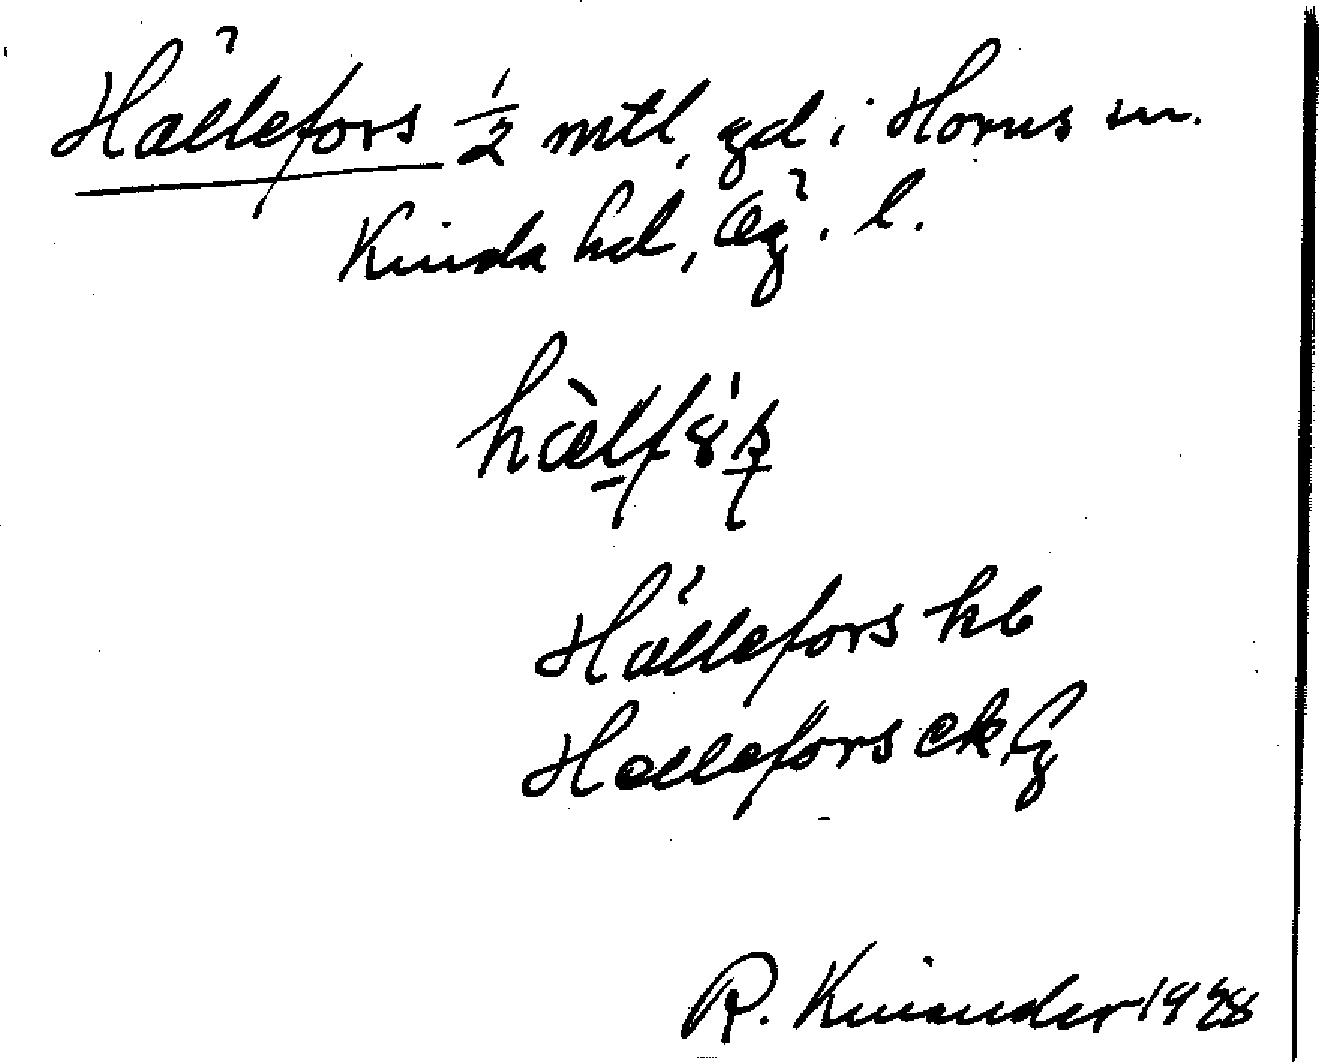 Hällefors 1/2 mtl, gd i Horns sn.
Kinda hd, Ög. l.
Hällefors hb
Hällefors ek,
R. Kinander 1928